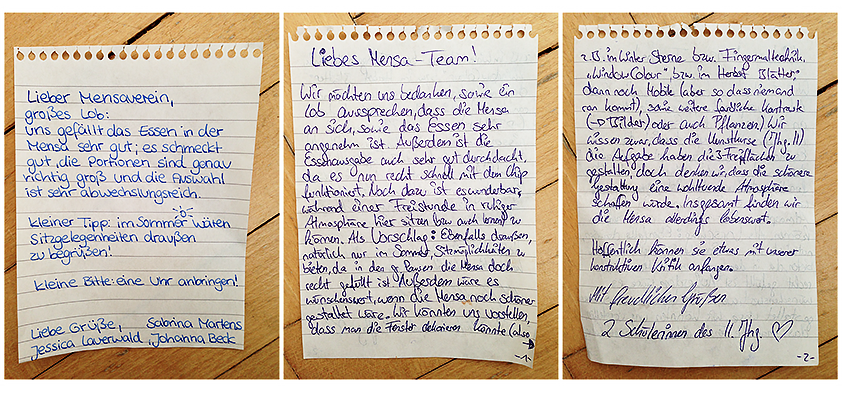 Lieber Mensaverein,
großes Lob:
uns gefällt das Essen in der
Mensa sehr gut; es schmeckt
gut, die Portionen sind genau
richtig groß und die Auswahl
ist sehr abwechslungsreich.
kleiner Tipp: im Sommer wären
Sitzgelegenheiten draußen
zu begrüßen!
kleine Bitte: eine Uhr anbringen!
Liebe Grüße, Sabrina Martens
Jessica Lauerwald, Johanna Beck
Liebes Mensa-Team!
Wir möchten uns bedanken, sowie ein
Lob aussprechen, dass die Mensa
an sich, sowie das Essen sehr
angenehm ist. Außerdem ist die
Essensausgabe auch sehr gut durchdacht,
da es nun recht schnell mit dem Chip
funktioniert. Noch dazu ist es wunderbar,
während einer Freistunde in ruhiger
Atmosphäre hier sitzen (bzw auch lernen) zu
können. Als Vorschlag: Ebenfalls draußen,
natürlich nur im Sommer, Sitzmöglichkeiten zu
bieten, da in den gr. Pausen die Mensa doch
recht gefüllt ist. Außerdem wäre es
wünschenswert, wenn die Mensa noch schöner
gestaltet wäre. Wir könnten uns vorstellen,
dass man die Fenster dekorieren könnte (also
-1-
z.B. im Winter Sterne bzw. Fingermaltechnik,
„Window Colour", bzw. im Herbst Blätter,
dann noch Mobile (aber so dass niemand
ran kommt), sowie weitere farbliche Kontraste
(→ Bilder) oder auch Pflanzen). Wir
wissen zwar, dass die Kunstkurse (Jhg. 11)
die Aufgabe haben die 3 Freiflächen zu
gestalten, doch denken wir, dass die schönere
Gestaltung eine wohltuende Atmosphäre
schaffen würde. Insgesamt finden wir
die Mensa allerdings lobenswert.
Hoffentlich können sie etwas mit unserer
konstruktiven Kritik anfangen.
Mit freundlichen Grüßen
2 Schülerinnen des 11. Jhg. ♡
-2-